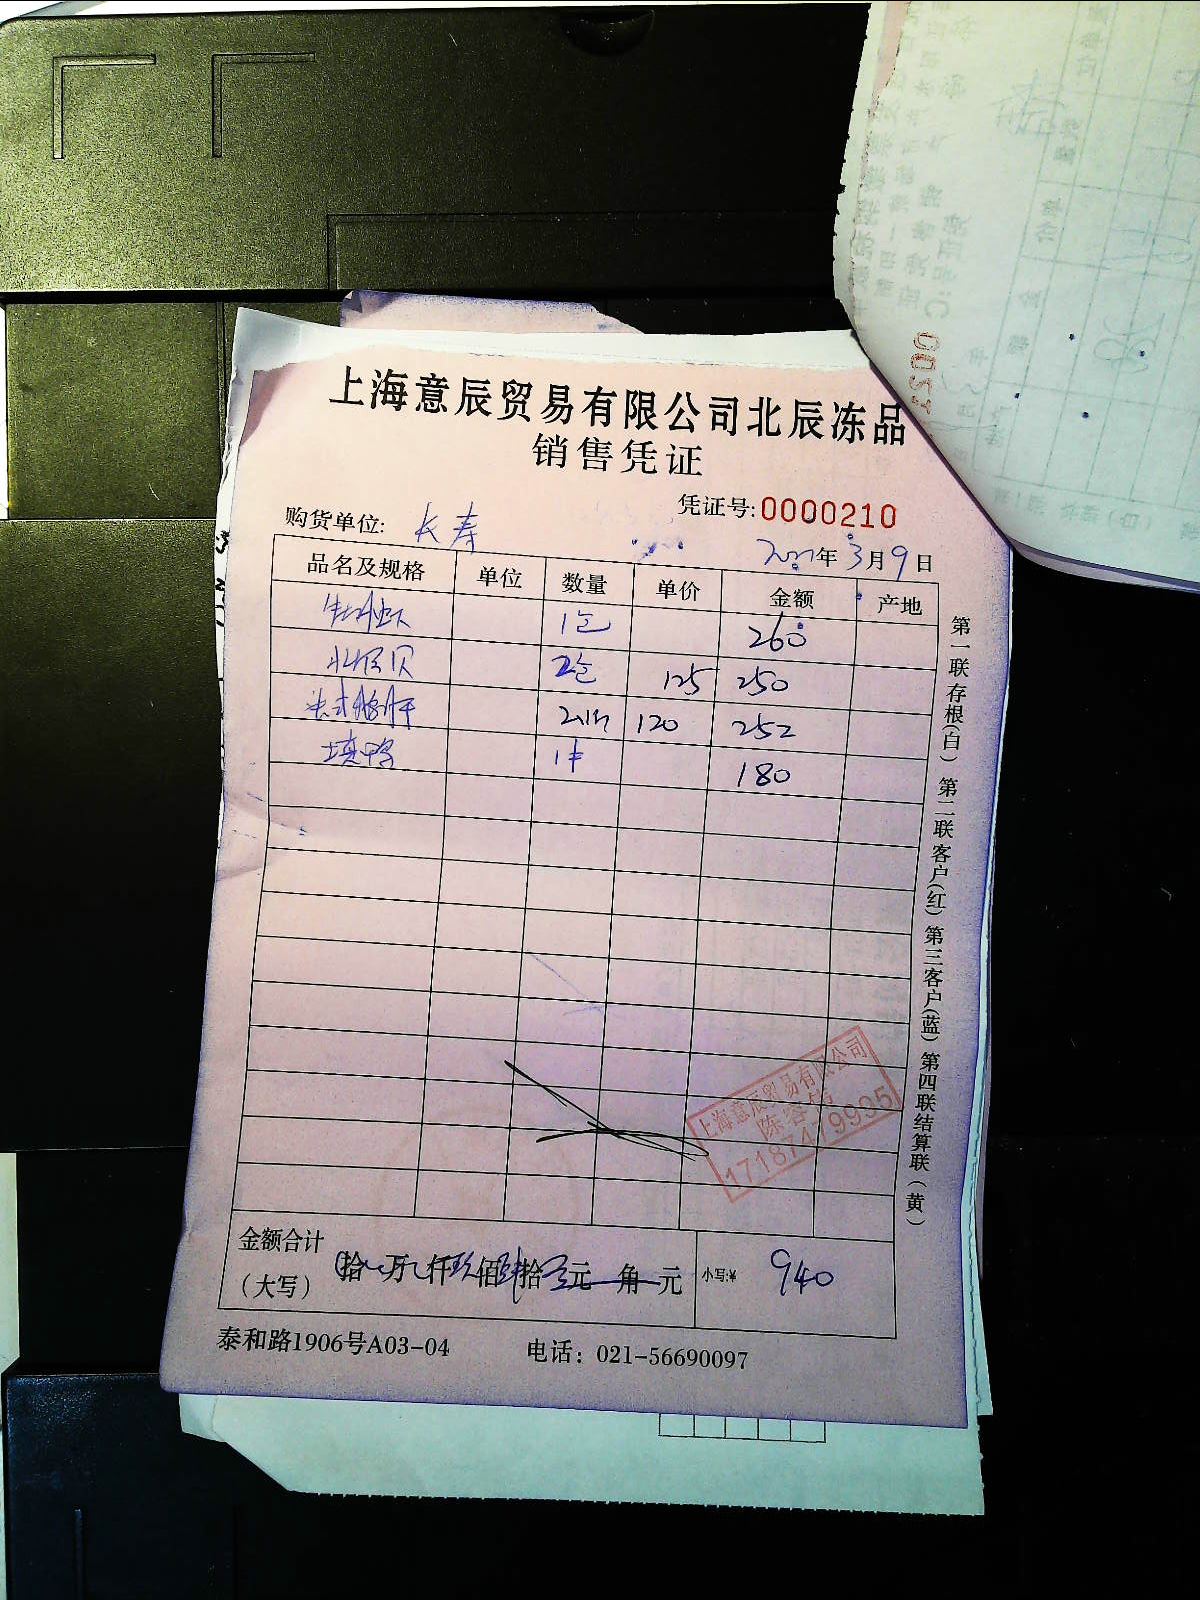 上海意辰贸易有限公司北辰冻品
销售凭证
凭证号:0000210
购货单位: 长寿
2021年3月9日
品名及规格 单位 数量 单价 金额 产地
1包 260
北极贝 2包 125 250
法式鹅肝 2.1kg 120 252
填鸭 1件 180
第一联存根(白) 第二联客户(红) 第三客户(蓝) 第四联结算联(黄)
上海意辰贸易有限公司
17187419935
金额合计
(大写) 拾 万 仟玖佰肆拾元 角 元 小写:¥ 940
泰和路1906号A03-04 电话: 021-56690097